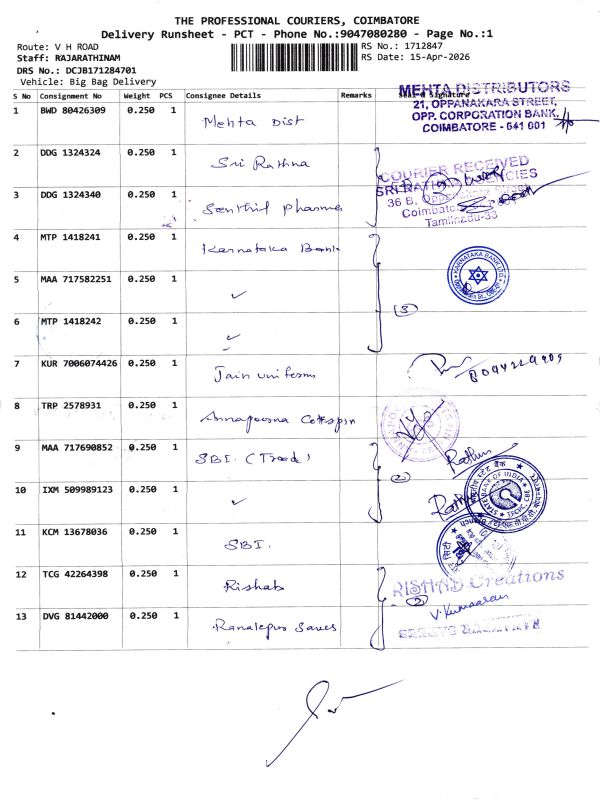 THE PROFESSIONAL COURIERS, COIMBATORE
Delivery Runsheet - PCT - Phone No.:9047080280 - Page No.:1
Route: V H ROAD
RS No.: 1712847
Staff: RAJARATHINAM
RS Date: 15-Apr-2026
DRS No.: DCJB171284701
Vehicle: Big Bag Delivery
S No Consignment No Weight PCS Consignee Details Remarks Seal & Signature
MEHTA DISTRIBUTORS
21, OPPANAKARA STREET,
OPP. CORPORATION BANK,
COIMBATORE - 641 001
1 BWD 80426309 0.250 1 Mehta Dist
2 DDG 1324324 0.250 1 Sri Rathna
COURIER RECEIVED
36 B,
Tamilnadu-33
3 DDG 1324340 0.250 1 Senthil pharma
4 MTP 1418241 0.250 1 Karnataka Bank
KARNATAKA BANK LTD
5 MAA 717582251 0.250 1 ✓
3
6 MTP 1418242 0.250 1 ✓
7 KUR 7006074426 0.250 1 Jain uniforms
8 TRP 2578931 0.250 1 Annapoorna Cotspin
9 MAA 717690852 0.250 1 SBI. (Trade)
2
Rathin
10 IXM 509989123 0.250 1 ✓
भारतीय स्टेट बैंक
STATE BANK OF INDIA
11 KCM 13678036 0.250 1 SBI.
12 TCG 42264398 0.250 1 Rishab
RISHAB Creations
2
V. Kumaaran
13 DVG 81442000 0.250 1